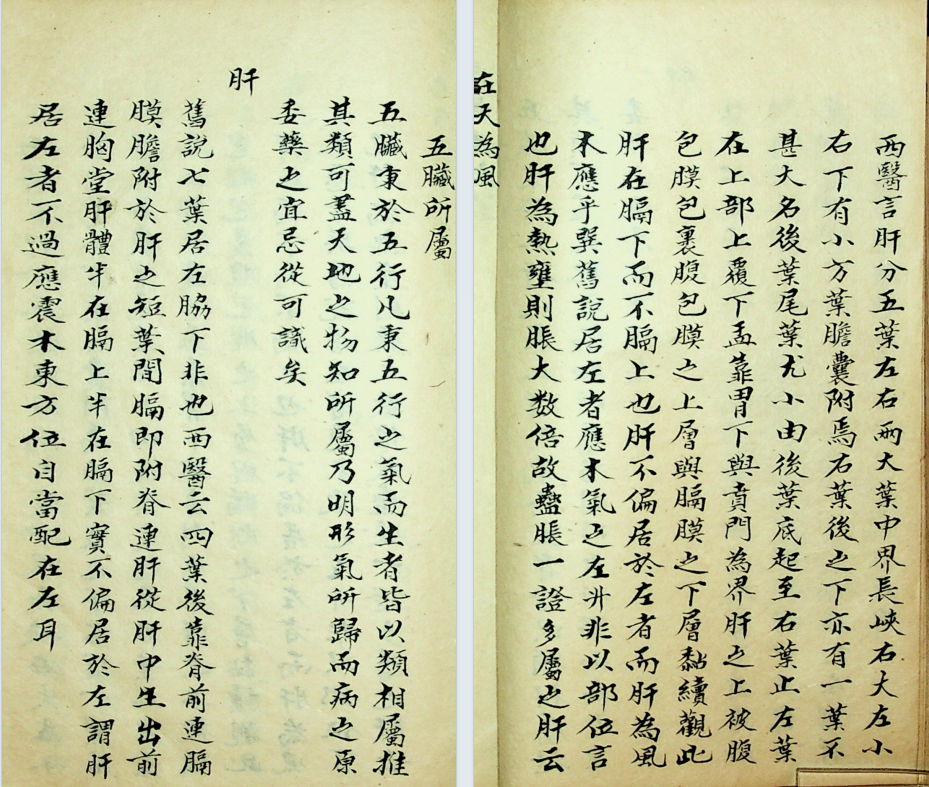 五臟所屬
五臟稟於五行凡稟五行之氣而生者皆以類相屬推
其類可盡天地之物知所屬乃明形氣所歸而病之原
委藥之宜忌從可識矣
肝
舊說七葉居左脇下非也西醫云四葉後靠脊前連膈
膜膽附於肝之短葉間膈即附脊連肝從肝中生出前
連胸堂肝體半在膈上半在膈下實不偏居於左謂肝
居左者不過應震木東方位自當配在左耳
西醫言肝分五葉左右兩大葉中界長峽右大左小
右下有小方葉膽囊附焉右葉後之下亦有一葉不
甚大名後葉尾葉尤小由後葉底起至右葉止左葉
在上部上覆下盂靠胃下與賁門為界肝之上被腹
包膜包裹腹包膜之上層與膈膜之下層黏續觀此
肝在膈下而不膈上也肝不偏居於左者而肝為風
木應乎巽舊說居左者應木氣之左升非以部位言
也肝為熱壅則脹大数倍故蠱脹一證多屬之肝云
在天為風